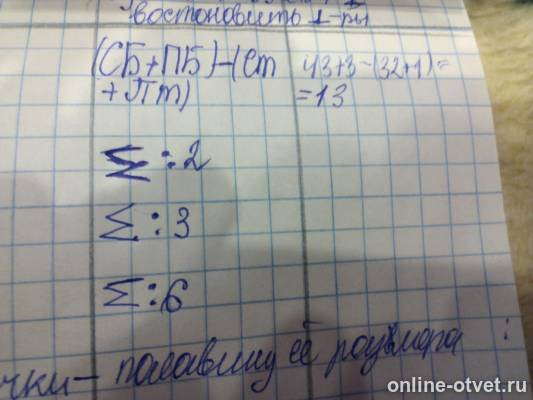 востоновить 1-ры
(СБ+ПБ)-(Ст 43+3-(32+1)=
+Пт) =13
Σ:2
Σ:3
Σ:6
чки- палавину её розмера :
online-otvet.ru